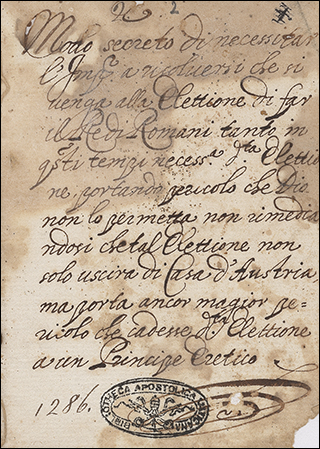 2
Modo secreto di necessitar
l'Imp.re a risolversi che si
venga alla Elettione di far
il Re di Romani tanto in
q.sti tempi necess.a d.ta Elettio
ne, portando pericolo che Dio
non lo permetta non rimedia
ndosi che tal Elettione non
solo uscira di Casa d'Austria,
ma porta ancor magior pe-
ricolo che cadesse d.ta Elettione
a un Principe Eretico
1286.
BIBLIOTHECA APOSTOLICA VATICANA